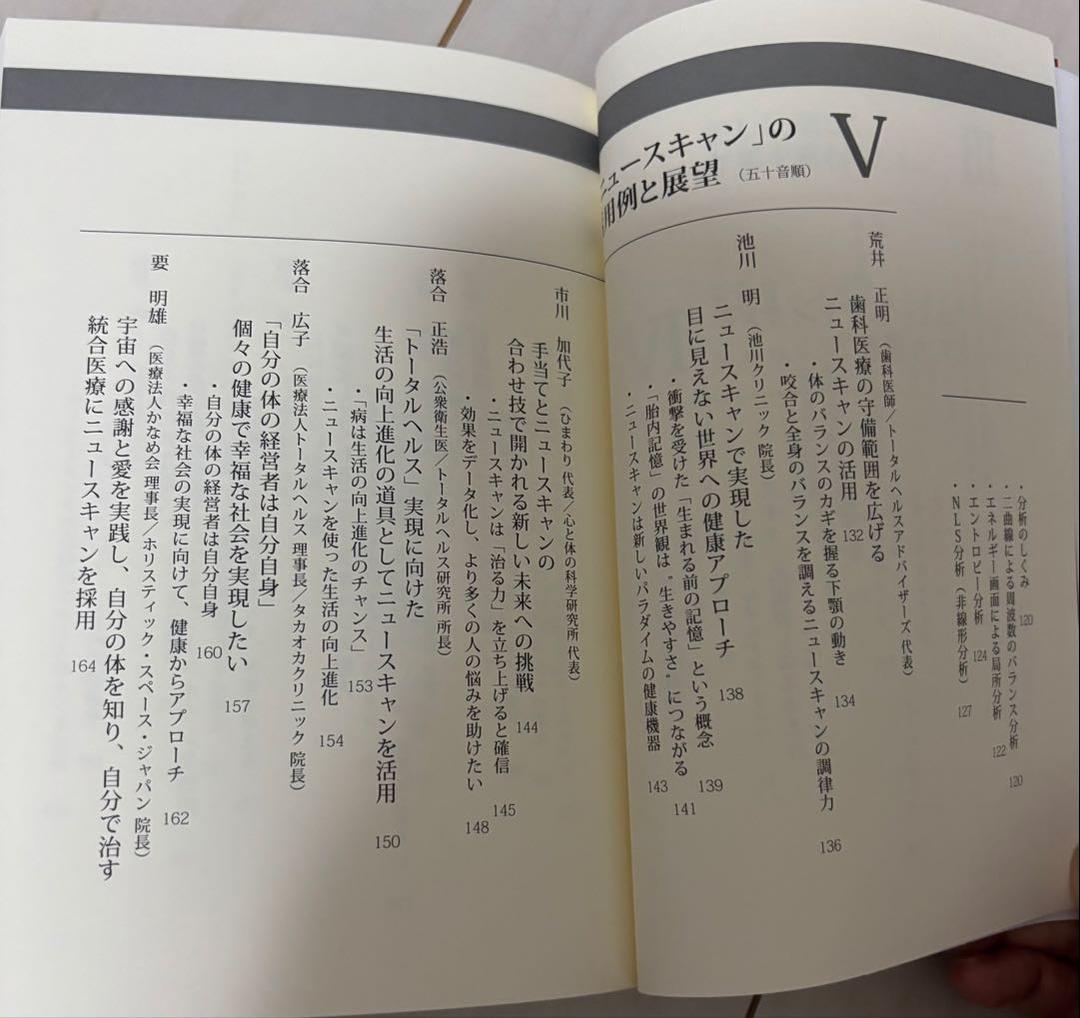 ・分析のしくみ 120
・二曲線による周波数のバランス分析 120
・エネルギー画面による局所分析 122
・エントロピー分析 124
・NLS分析(非線形分析) 127
V
ニュースキャン」の
用例と展望 (五十音順)
荒井 正明 (歯科医師/トータルヘルスアドバイザーズ 代表)
歯科医療の守備範囲を広げる
ニュースキャンの活用 132
・体のバランスのカギを握る下顎の動き 134
・咬合と全身のバランスを調えるニュースキャンの調律力 136
池川 明 (池川クリニック 院長)
ニュースキャンで実現した
目に見えない世界への健康アプローチ 138
・衝撃を受けた「生まれる前の記憶」という概念 139
・「胎内記憶」の世界観は〝生きやすさ〟につながる 141
・ニュースキャンは新しいパラダイムの健康機器 143
市川 加代子 (ひまわり 代表/心と体の科学研究所 代表)
手当てとニュースキャンの
合わせ技で開かれる新しい未来への挑戦 144
・ニュースキャンは「治る力」を立ち上げると確信 145
・効果をデータ化し、より多くの人の悩みを助けたい 148
落合 正浩 (公衆衛生医/トータルヘルス研究所 所長)
「トータルヘルス」実現に向けた
生活の向上進化の道具としてニュースキャンを活用 150
・「病は生活の向上進化のチャンス」 153
・ニュースキャンを使った生活の向上進化 154
落合 広子 (医療法人トータルヘルス 理事長/タカオカクリニック 院長)
「自分の体の経営者は自分自身」
個々の健康で幸福な社会を実現したい 157
・自分の体の経営者は自分自身 160
・幸福な社会の実現に向けて、健康からアプローチ 162
要 明雄 (医療法人かなめ会 理事長/ホリスティック・スペース・ジャパン 院長)
宇宙への感謝と愛を実践し、自分の体を知り、自分で治す
統合医療にニュースキャンを採用 164